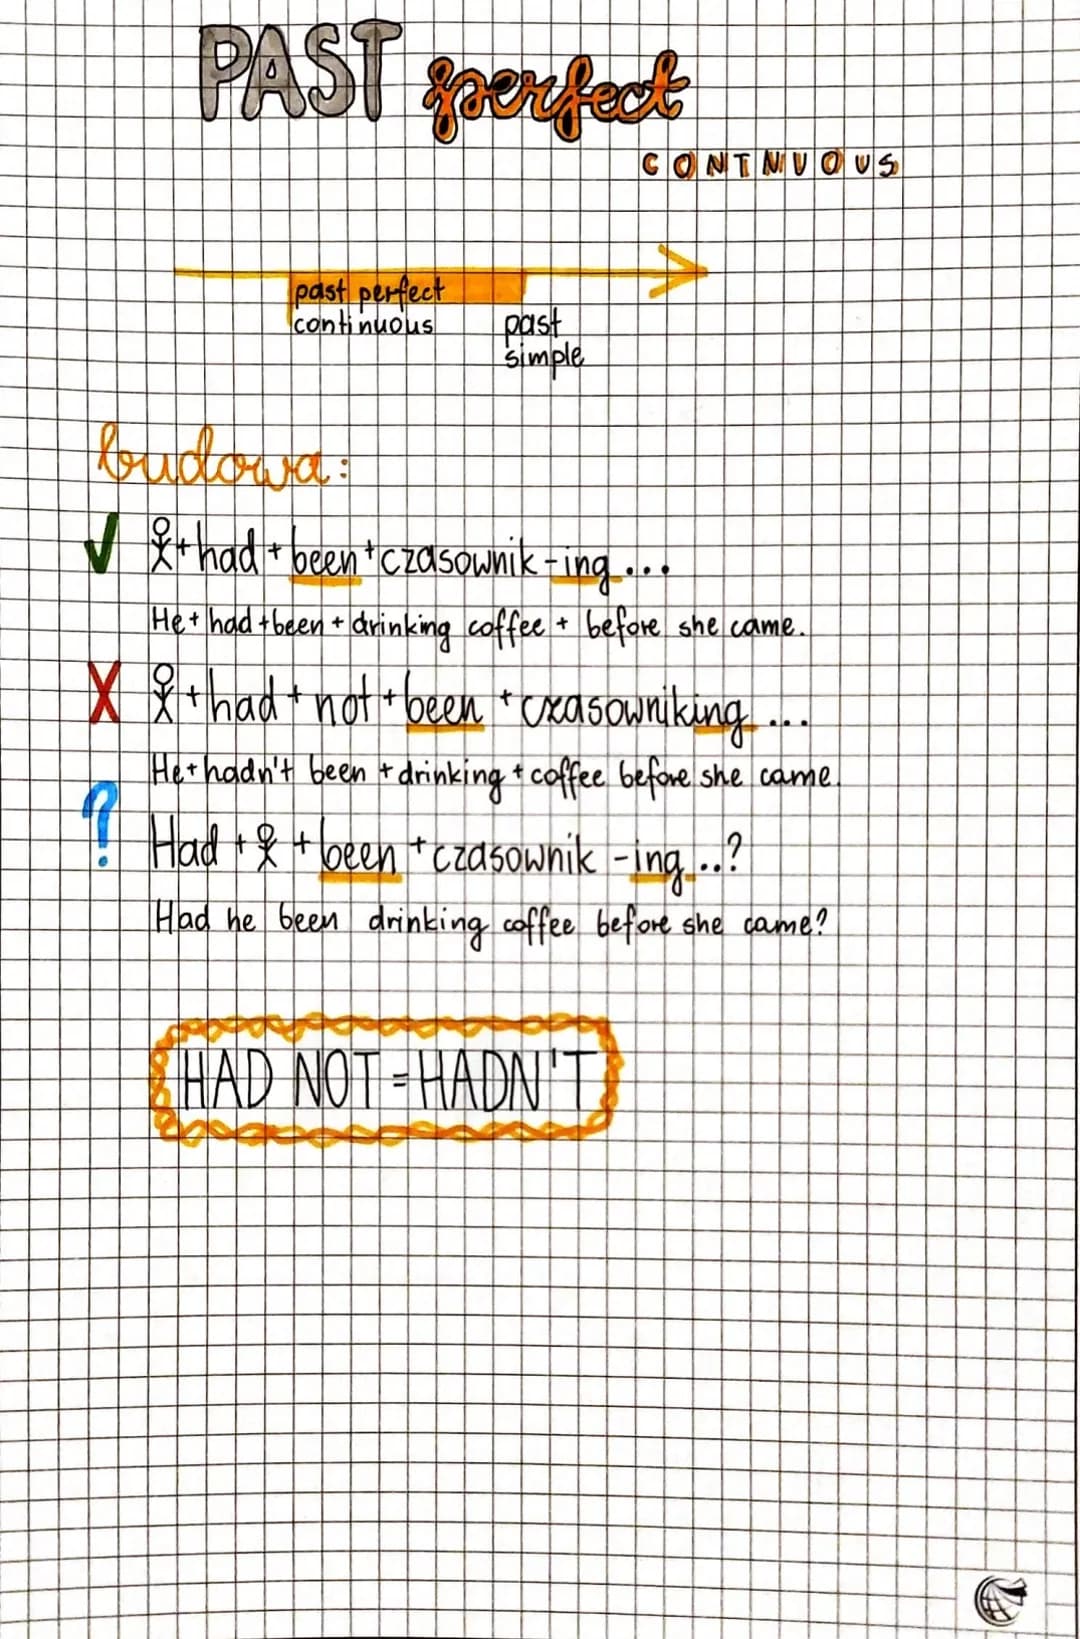 PAST perfect
CONTNUOUS
past perfect
continuous
past
simple
budowa:
+ had + been + czasownik - ing ...
He + had + been + drinking coffee + before she came.
X + had + not + been + czasowniking ...
He + hadn't been + drinking + coffee before she came.
? Had + + been + czasownik - ing ..?
Had he been drinking coffee before she came?
HAD NOT = HADN'T